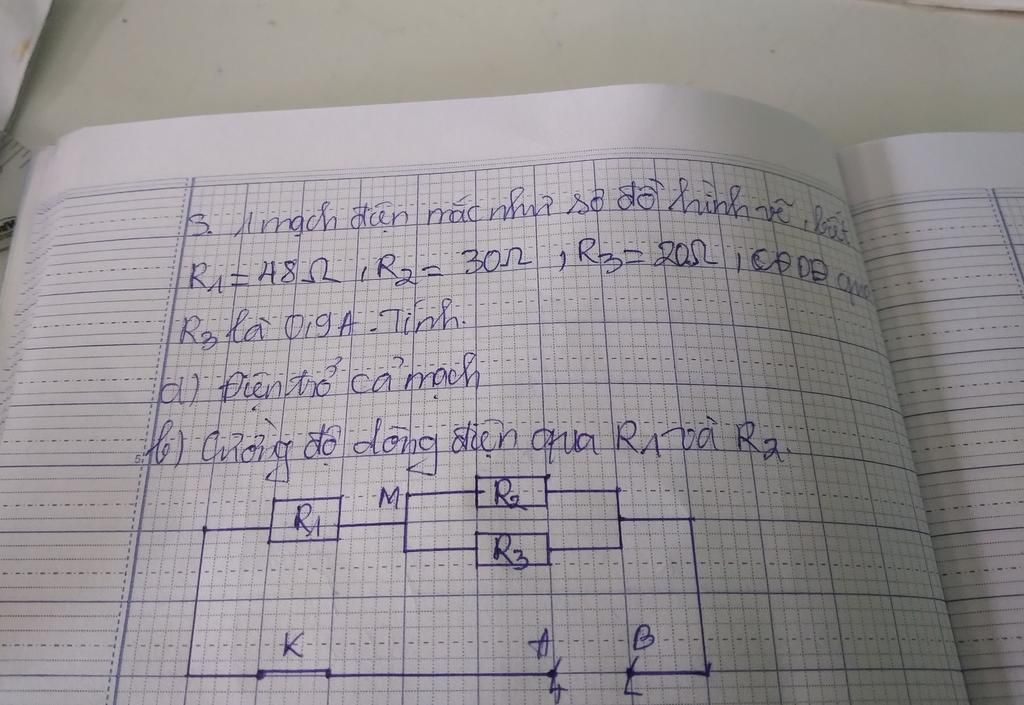 3. 1 mạch điện mắc như sơ đồ hình vẽ, biết
R1 = 48Ω, R2 = 30Ω, R3 = 20Ω, CĐDĐ qua
R3 là 0,9A. Tính.
a) Điện trở cả mạch
b) Cường độ dòng điện qua R1 và R2.
M R2
R1
R3
K A B
+ -